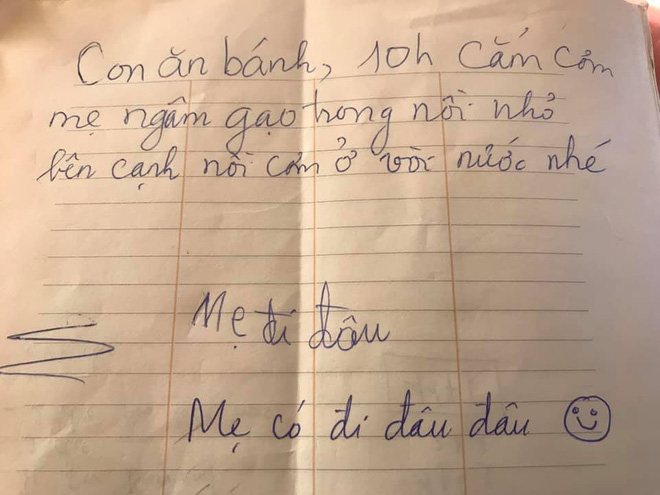 Con ăn bánh, 10h cắm cơm
mẹ ngâm gạo trong nồi nhỏ
bên cạnh nồi cơm ở vòi nước nhé
Mẹ đi đâu
Mẹ có đi đâu đâu